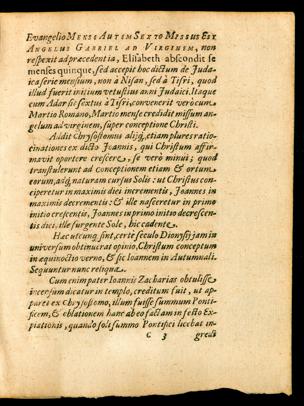 Evangelio MENSE AUTEM SEXTO MISSUS EST
ANGELUS GABRIEL AD VIRGINEM, non
respexit ad præcedentia, Elisabeth abscondit se
menses quinque, sed accepit hoc dictum de Judai-
ca serie mensium, non à Nisan, sed à Tisri, quod
illud fuerit initium vetustius anni Judaici. Itaque
cum Adar sic sextus à Tisri, convenerit verò cum
Martio Romano, Martio mense credidit missum an-
gelum ad virginem, super conceptione Christi.
Addit Chrysostomus aliiq́, etiam plures ratio-
cinationes ex dicto Joannis, qui Christum affir-
mavit oportere crescere, se verò minui; quod
transtulerunt ad conceptionem etiam & ortum
eorum, aliq́ naturam cursus Solis: ut Christus con-
ciperetur in maximis diei incrementis, Joannes in
maximis decrementis: & ille nasceretur in primo
initio crescentis, Joannes in primo initio decrescen-
tis diei, ille surgente Sole, hic cadente.
Hæc utcunq́ sint, certè seculo Dionysij jam in
universum obtinuerat opinio, Christum conceptum
in æquinoctio verno, & sic Joannem in Autumnali.
Sequuntur nunc reliqua.
Cum enim pater Joannis Zacharias obtulisse
incensum dicatur in templo, creditum fuit, ut ap-
paret ex Chrysostomo, illum fuisse summum Ponti-
ficem, & oblationem hanc ab eo factam in festo Ex-
piationis, quando soli summo Pontifici licebat in-
C 3 gredi